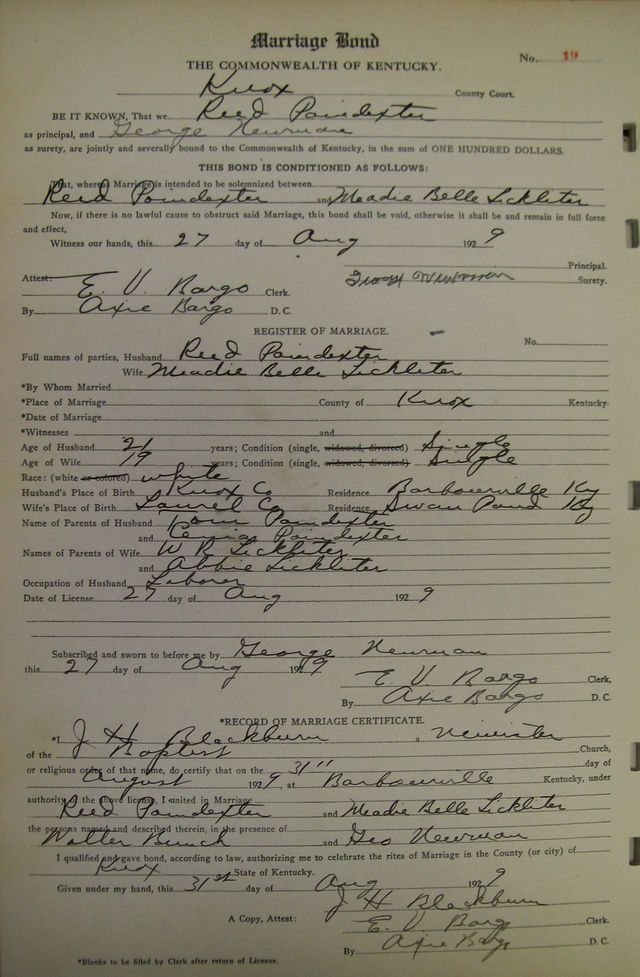 Marriage Bond
No. 19
THE COMMONWEALTH OF KENTUCKY.
Knox County Court.
BE IT KNOWN, That we Reed Poindexter
as principal, and George Newman
as surety, are jointly and severally bound to the Commonwealth of Kentucky, in the sum of ONE HUNDRED DOLLARS.
THIS BOND IS CONDITIONED AS FOLLOWS:
That, whereas Marriage is intended to be solemnized between
Reed Poindexter and Meadie Belle Lickliter
Now, if there is no lawful cause to obstruct said Marriage, this bond shall be void, otherwise it shall be and remain in full force
and effect,
Witness our hands, this 27 day of Aug 1929
Principal.
Attest: George Newman Surety.
E. V. Bargo Clerk.
By Axie Bargo D. C.
REGISTER OF MARRIAGE.
No.
Full names of parties, Husband Reed Poindexter
Wife Meadie Belle Lickliter
*By Whom Married
*Place of Marriage County of Knox Kentucky.
*Date of Marriage
*Witnesses and
Age of Husband 21 years; Condition (single, widowed, divorced) Single
Age of Wife 19 years; Condition (single, widowed, divorced) Single
Race: (white or colored) white
Husband's Place of Birth Knox Co Residence Barbourville Ky
Wife's Place of Birth Laurel Co Residence Swan Pond Ky
Name of Parents of Husband Poindexter
and Poindexter
Names of Parents of Wife W R Lickliter
and Abbie Lickliter
Occupation of Husband Laborer
Date of License 27 day of Aug 1929
Subscribed and sworn to before me by George Newman
this 27 day of Aug 1929
E. V. Bargo Clerk,
By Axie Bargo D. C.
*RECORD OF MARRIAGE CERTIFICATE.
*I J H Blackburn a Minister
of the Baptist Church,
or religious order of that name, do certify that on the 31" day of
August 1929, at Barbourville Kentucky, under
authority of the above license, I united in Marriage
Reed Poindexter and Meadie Belle Lickliter
the persons named and described therein, in the presence of
Walter Bunch and Geo Newman
I qualified and gave bond, according to law, authorizing me to celebrate the rites of Marriage in the County (or city) of
Knox State of Kentucky.
Given under my hand, this 31st day of Aug 1929
J H Blackburn
A Copy, Attest: E. V. Bargo Clerk.
By Axie Bargo D. C.
*Blanks to be filled by Clerk after return of License.